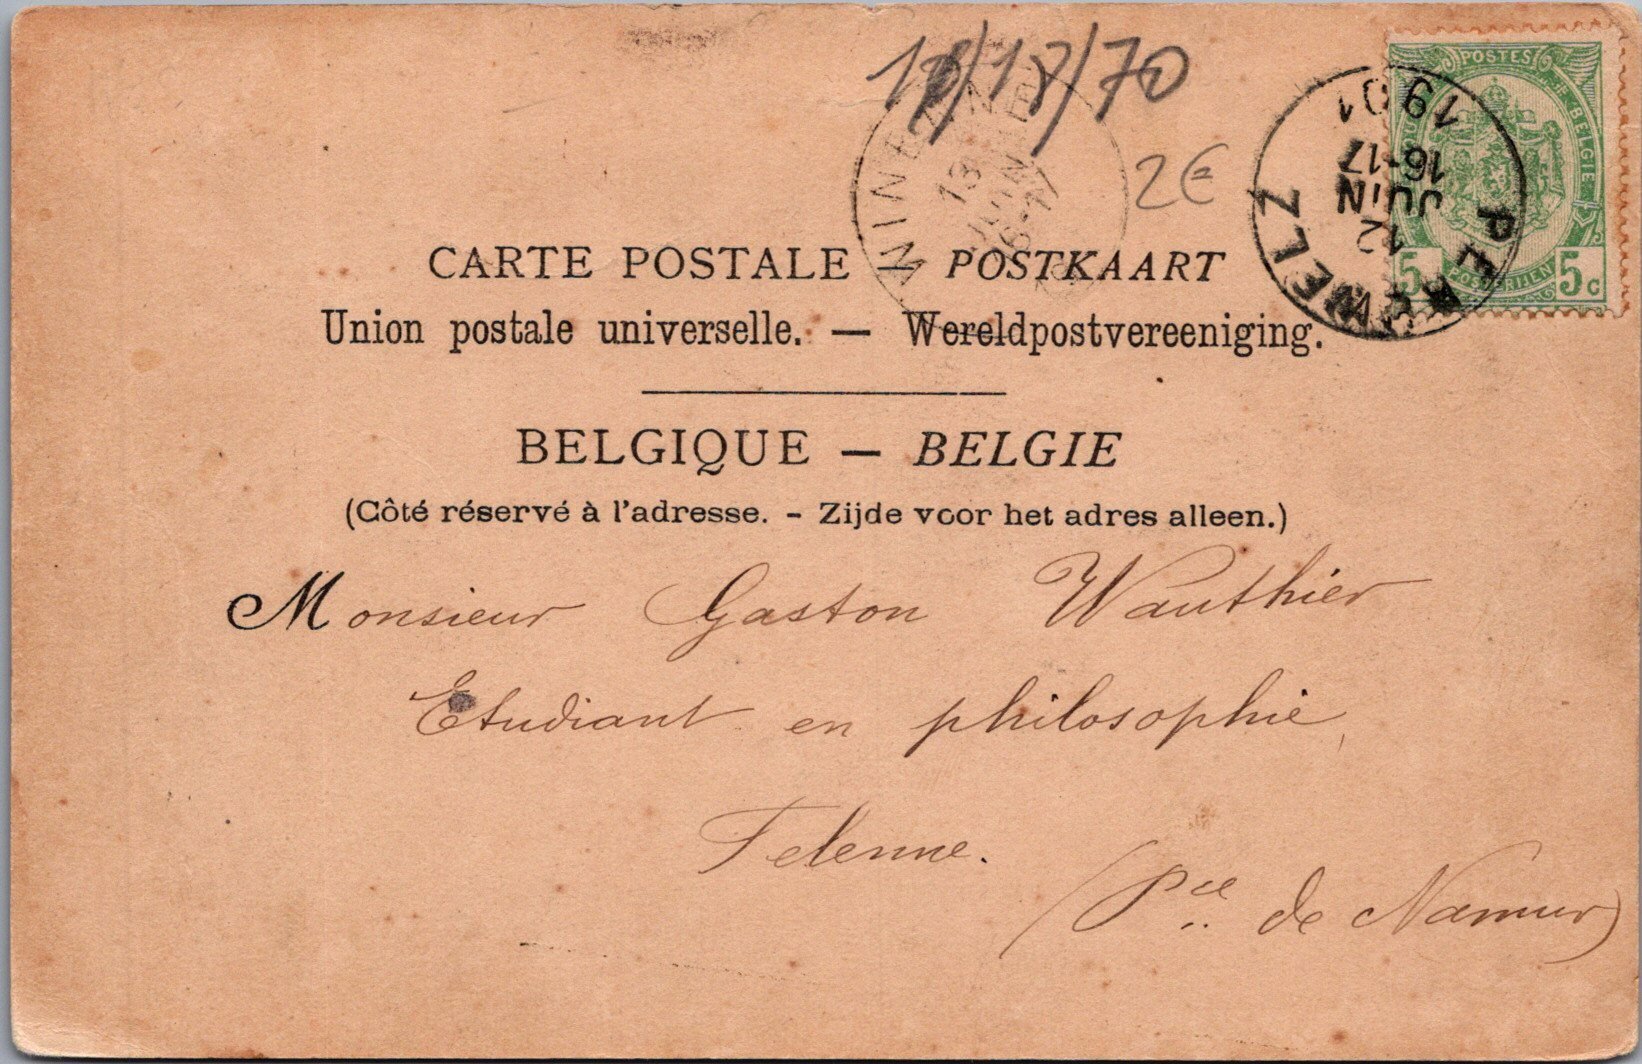 18/17/70
2€
POSTES
BELGIE
5 POSTERIJEN 5c
PERWELZ
12
JUIN
16-17
1901
13
JUIN
CARTE POSTALE — POSTKAART
Union postale universelle. — Wereldpostvereeniging.
BELGIQUE — BELGIE
(Côté réservé à l'adresse. - Zijde voor het adres alleen.)
Monsieur Gaston Wauthier
Etudiant en philosophie,
Felenne.
(Pce de Namur)